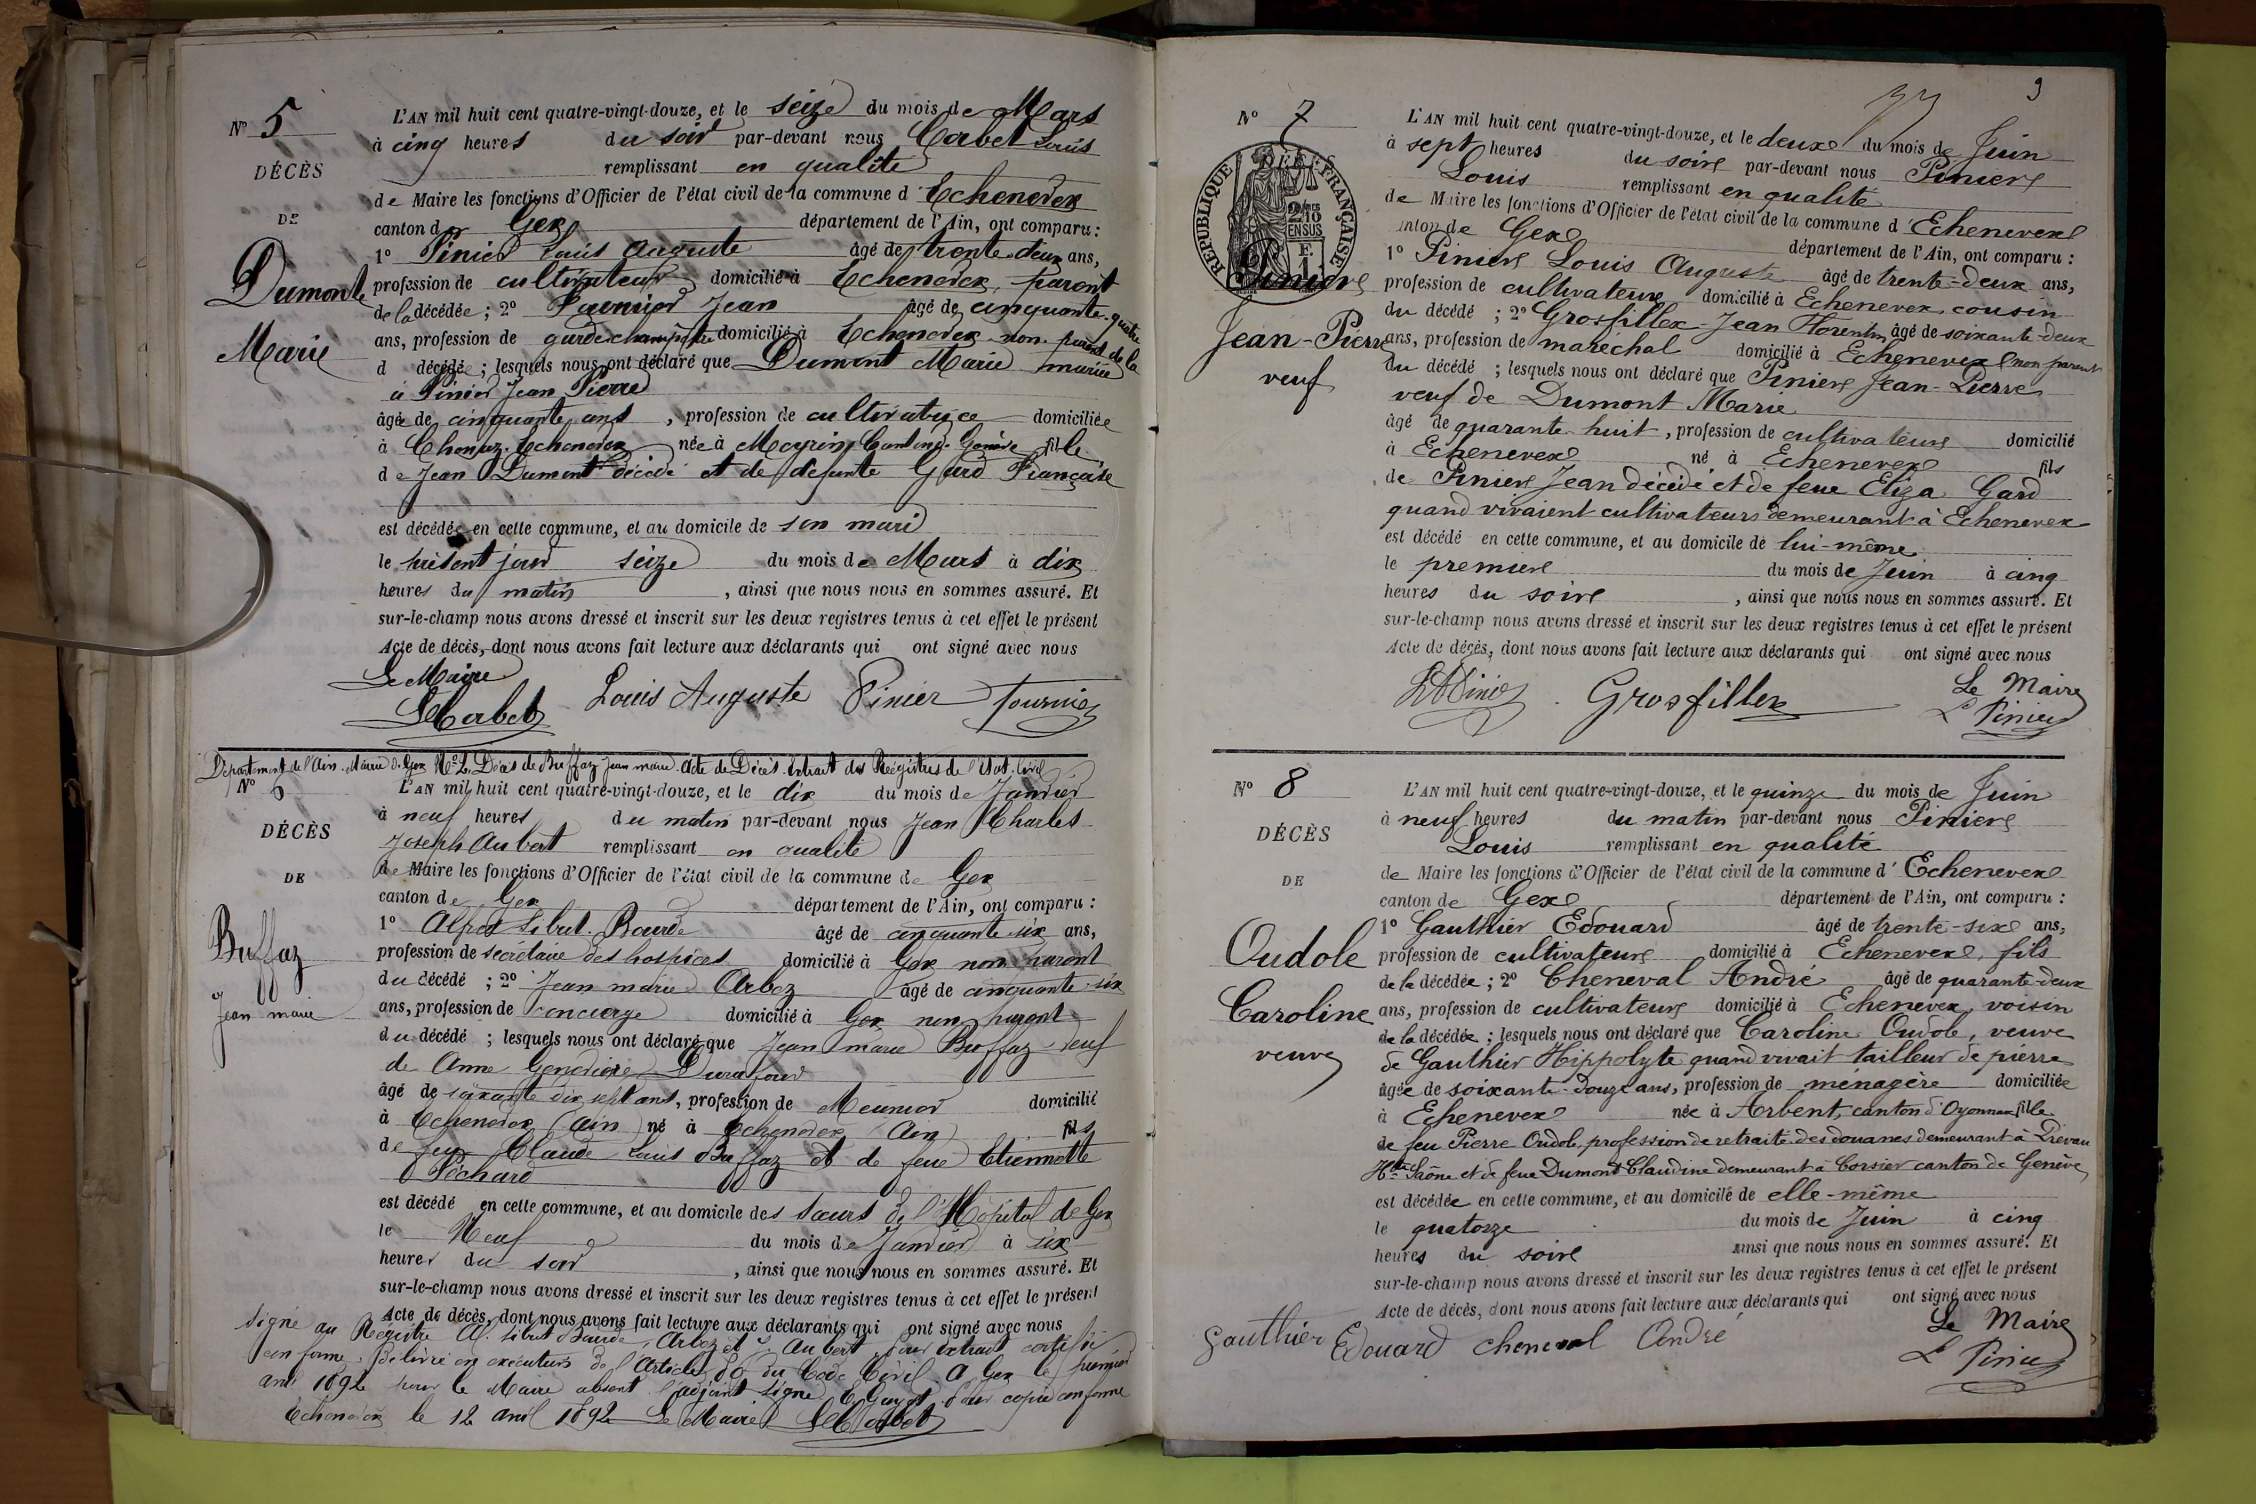 N° 5
DÉCÈS
DE
Dumont
Marie
L'AN mil huit cent quatre-vingt-douze, et le seize du mois de Mars
à cinq heures du soir par-devant nous Corbet Louis
remplissant en qualité
de Maire les fonctions d'Officier de l'état civil de la commune d'Echenevex
canton de Gex département de l'Ain, ont comparu :
1° Pinier Louis Auguste âgé de trente-deux ans,
profession de cultivateur domicilié à Echenevex, parent
de la décédée ; 2° Fournier Jean âgé de cinquante-quatre
ans, profession de garde champêtre domicilié à Echenevex non parent de la
d décédé ; lesquels nous ont déclaré que Dumont Marie mariée
à Pinier Jean Pierre
âgée de cinquante ans, profession de cultivatrice domiciliée
à Chenaz, Echenevex née à Meyrin, Canton de Genève fille
de Jean Dumont décédé et de défunte Gard Françoise
est décédée en cette commune, et au domicile de son mari
le présent jour seize du mois de Mars à dix
heures du matin, ainsi que nous nous en sommes assuré. Et
sur-le-champ nous avons dressé et inscrit sur les deux registres tenus à cet effet le présent
Acte de décès, dont nous avons fait lecture aux déclarants qui ont signé avec nous
Le Maire
L Corbet Louis Auguste Pinier Fournier
Département de l'Ain. Mairie de Gex N° 2. Décès de Buffaz Jean marie. Acte de Décès. Extrait des Registres de l'Etat. Civil
N° 6
DÉCÈS
DE
Buffaz
Jean marie
L'AN mil huit cent quatre-vingt-douze, et le dix du mois de Janvier
à neuf heures du matin par-devant nous Jean Charles
Joseph Aubert remplissant en qualité
de Maire les fonctions d'Officier de l'état civil de la commune de Gex
canton de Gex département de l'Ain, ont comparu :
1° Alfred Sibut. Bourde âgé de cinquante-six ans,
profession de secrétaire des hospices domicilié à Gex non parent
du décédé ; 2° Jean marie Arbez âgé de cinquante-six
ans, profession de Concierge domicilié à Gex non parent
du décédé ; lesquels nous ont déclaré que Jean marie Buffaz veuf
de Anne Geneviève Durafour
âgé de soixante dix sept ans, profession de Meunier domicilié
à Echenevex (Ain) né à Echenevex (Ain) fils
de feu Claude Louis Buffaz et de feue Etiennette
Pochard
est décédé en cette commune, et au domicile des sœurs de l'Hôpital de Gex
le Neuf du mois de Janvier à six
heures du soir, ainsi que nous nous en sommes assuré. Et
sur-le-champ nous avons dressé et inscrit sur les deux registres tenus à cet effet le présent
Acte de décès, dont nous avons fait lecture aux déclarants qui ont signé avec nous
Signé au Registre A. Sibut Bourde, Arbez et J. Aubert. Pour extrait certifié
conforme. Délivré en exécution de l'Article 80 du Code Civil. A Gex le premier
avril 1892 pour le Maire absent l'adjoint signé E Guyot. Pour copie conforme
Echenevex le 12 avril 1892 Le Maire L Corbet
9
N° 7
RÉPUBLIQUE FRANÇAISE
2/10
EN SUS
Piniere
Jean-Pierre
veuf
L'AN mil huit cent quatre-vingt-douze, et le deux du mois de Juin
à sept heures du soire par-devant nous Piniere
Louis remplissant en qualité
de Maire les fonctions d'Officier de l'état civil de la commune d'Echenevex
canton de Gex département de l'Ain, ont comparu :
1° Piniere Louis Auguste âgé de trente-deux ans,
profession de cultivateure domicilié à Echenevex, cousin
du décédé ; 2° Grosfillex Jean Florentin âgé de soixante-deux
ans, profession de maréchal domicilié à Echenevex non parent
du décédé ; lesquels nous ont déclaré que Piniere Jean-Pierre
veuf de Dumont Marie
âgé de quarante-huit, profession de cultivateure domicilié
à Echenevex né à Echenevex fils
de Piniere Jean décédé et de feue Eliza Gard
quand vivaient cultivateurs demeurant à Echenevex
est décédé en cette commune, et au domicile de lui-même
le premiere du mois de Juin à cinq
heures du soire, ainsi que nous nous en sommes assuré. Et
sur-le-champ nous avons dressé et inscrit sur les deux registres tenus à cet effet le présent
Acte de décès, dont nous avons fait lecture aux déclarants qui ont signé avec nous
LA Pinier Grosfillex Le Maire
L Pinier
N° 8
DÉCÈS
DE
Oudole
Caroline
veuve
L'AN mil huit cent quatre-vingt-douze, et le quinze du mois de Juin
à neuf heures du matin par-devant nous Piniere
Louis remplissant en qualité
de Maire les fonctions d'Officier de l'état civil de la commune d'Echenevex
canton de Gex département de l'Ain, ont comparu :
1° Gauthier Edouard âgé de trente-six ans,
profession de cultivateure domicilié à Echenevex, fils
de la décédée ; 2° Cheneval André âgé de quarante-deux
ans, profession de cultivateure domicilié à Echenevex, voisin
de la décédée ; lesquels nous ont déclaré que Caroline Oudole, veuve
de Gauthier Hippolyte quand vivait tailleur de pierre
âgée de soixante-douze ans, profession de ménagère domiciliée
à Echenevex née à Arbent, canton d'Oyonnax fille
de feu Pierre Oudole, profession de retraité des douanes demeurant à Prevau
Hte Saône et de feue Dumont Claudine demeurant à Corsier canton de Genève
est décédée en cette commune, et au domicile de elle-même
le quatorze du mois de Juin à cinq
heures du soire ainsi que nous nous en sommes assuré. Et
sur-le-champ nous avons dressé et inscrit sur les deux registres tenus à cet effet le présent
Acte de décès, dont nous avons fait lecture aux déclarants qui ont signé avec nous
Gauthier Edouard cheneval André Le Maire
L Pinier